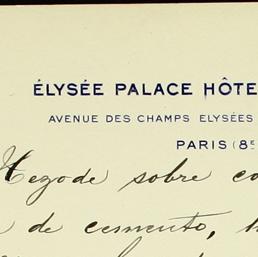 ÉLYSÉE PALACE HÔTE
AVENUE DES CHAMPS ELYSÉES
PARIS (8E
sobre
de cemento,